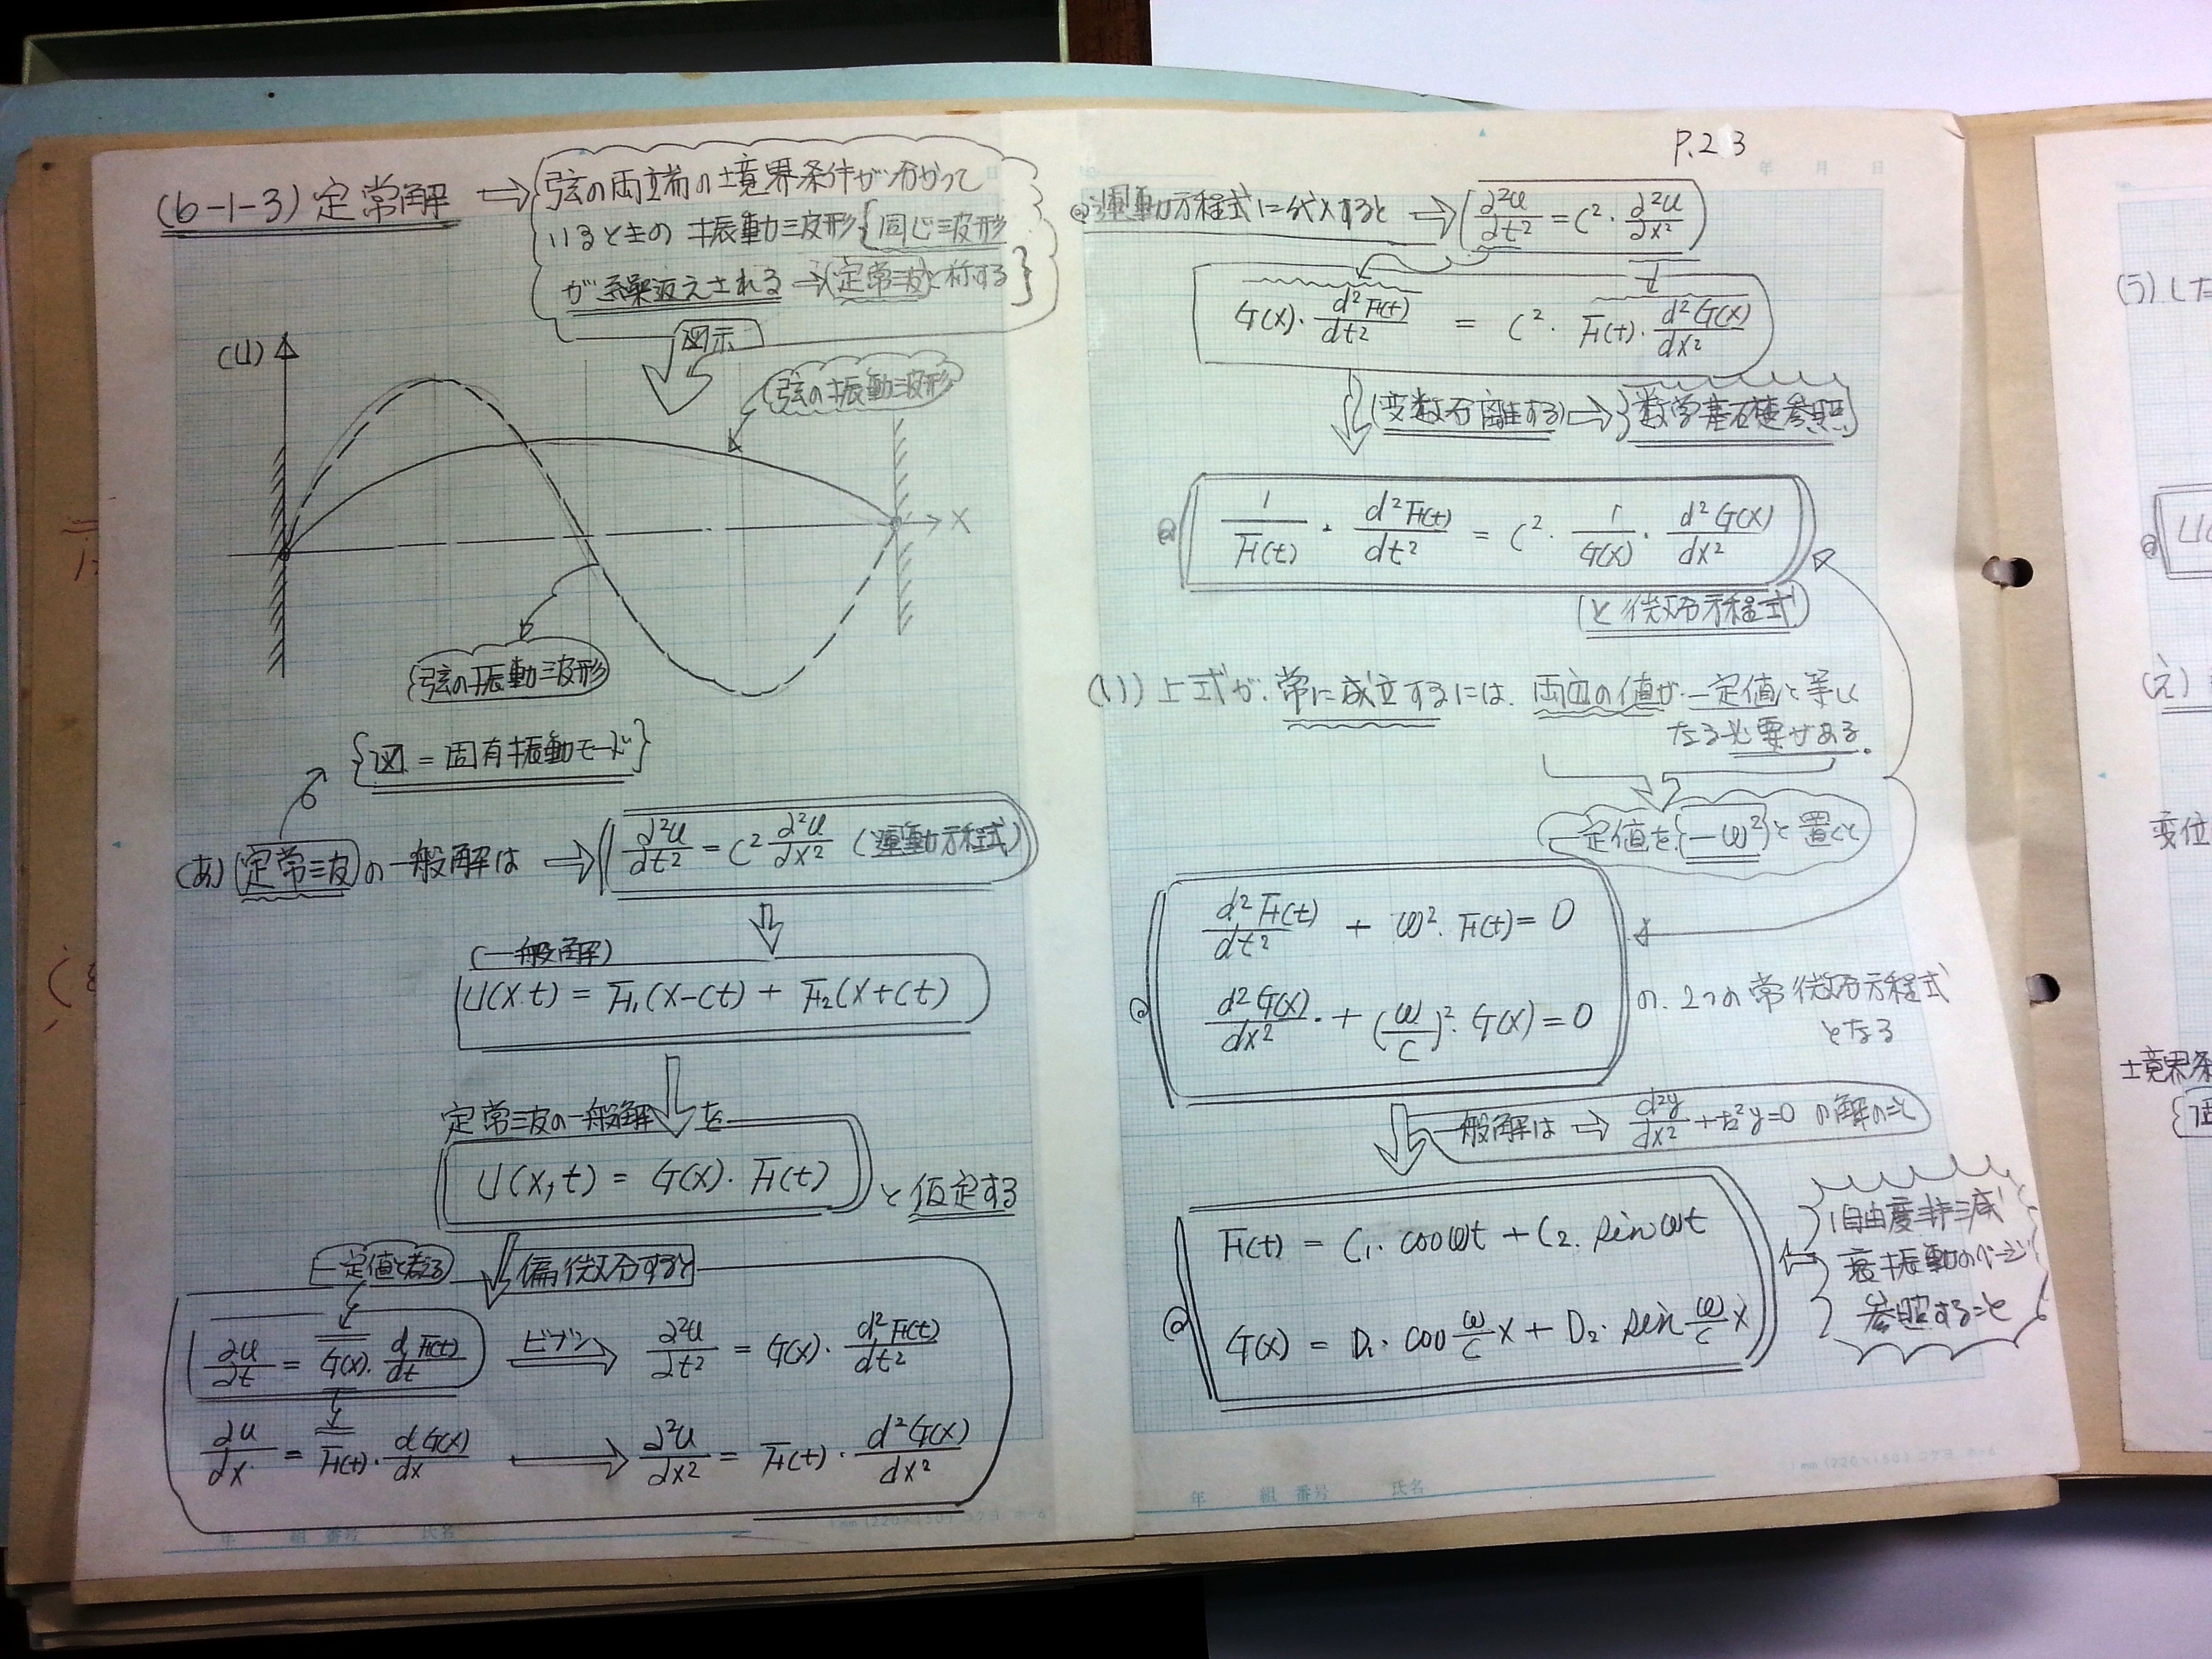 (b-1-3) 定常解 ⇒ 弦の両端の境界条件が分かって
いるときの 振動波形{同じ波形
が繰返えされる→(定常波)と称する}
図示
(U)
弦の振動波形
X
弦の振動波形
{図 = 固有振動モード}
(あ) 定常波の一般解は ⇒ ∂²u/∂t² = C² ∂²u/∂x² (運動方程式)
(一般解)
U(x t) = F₁(x-ct) + F₂(x+ct)
定常波の一般解 を
U(x, t) = G(x)・F(t) と仮定する
一定値と考る
偏微分すると
∂u/∂t = G(x)・d F(t)/dt ビブン ∂²u/∂t² = G(x)・d²F(t)/dt²
∂u/∂x = F(t)・d G(x)/dx → ∂²u/∂x² = F(t)・d²G(x)/dx²
年 組 番号 氏名
P.23
年 月 日
運動方程式に代入すると ⇒ ∂²u/∂t² = C²・∂²u/∂x²
G(x)・d²F(t)/dt² = C²・F(t)・d²G(x)/dx²
(変数分離する) ⇒ 数学基礎参照
1/F(t)・d²F(t)/dt² = C²・1/G(x)・d²G(x)/dx²
(と微分方程式)
(い) 上式が、常に成立するには、両辺の値が一定値と等しく
なる必要がある。
一定値を{-ω²}と置くと
d²F(t)/dt² + ω²・F(t) = 0
d²G(x)/dx² + (ω/c)²・G(x) = 0
の、2つの常微分方程式
となる
一般解は ⇒ d²y/dx² + k²y = 0 の解のこと
F(t) = C₁・cosωt + C₂・sinωt
G(x) = D₁・cos ω/c x + D₂・sin ω/c x
1自由度非減
衰振動のページ
参照すること
年 組 番号 氏名
(う) した
U(
(え)
変位
境界条